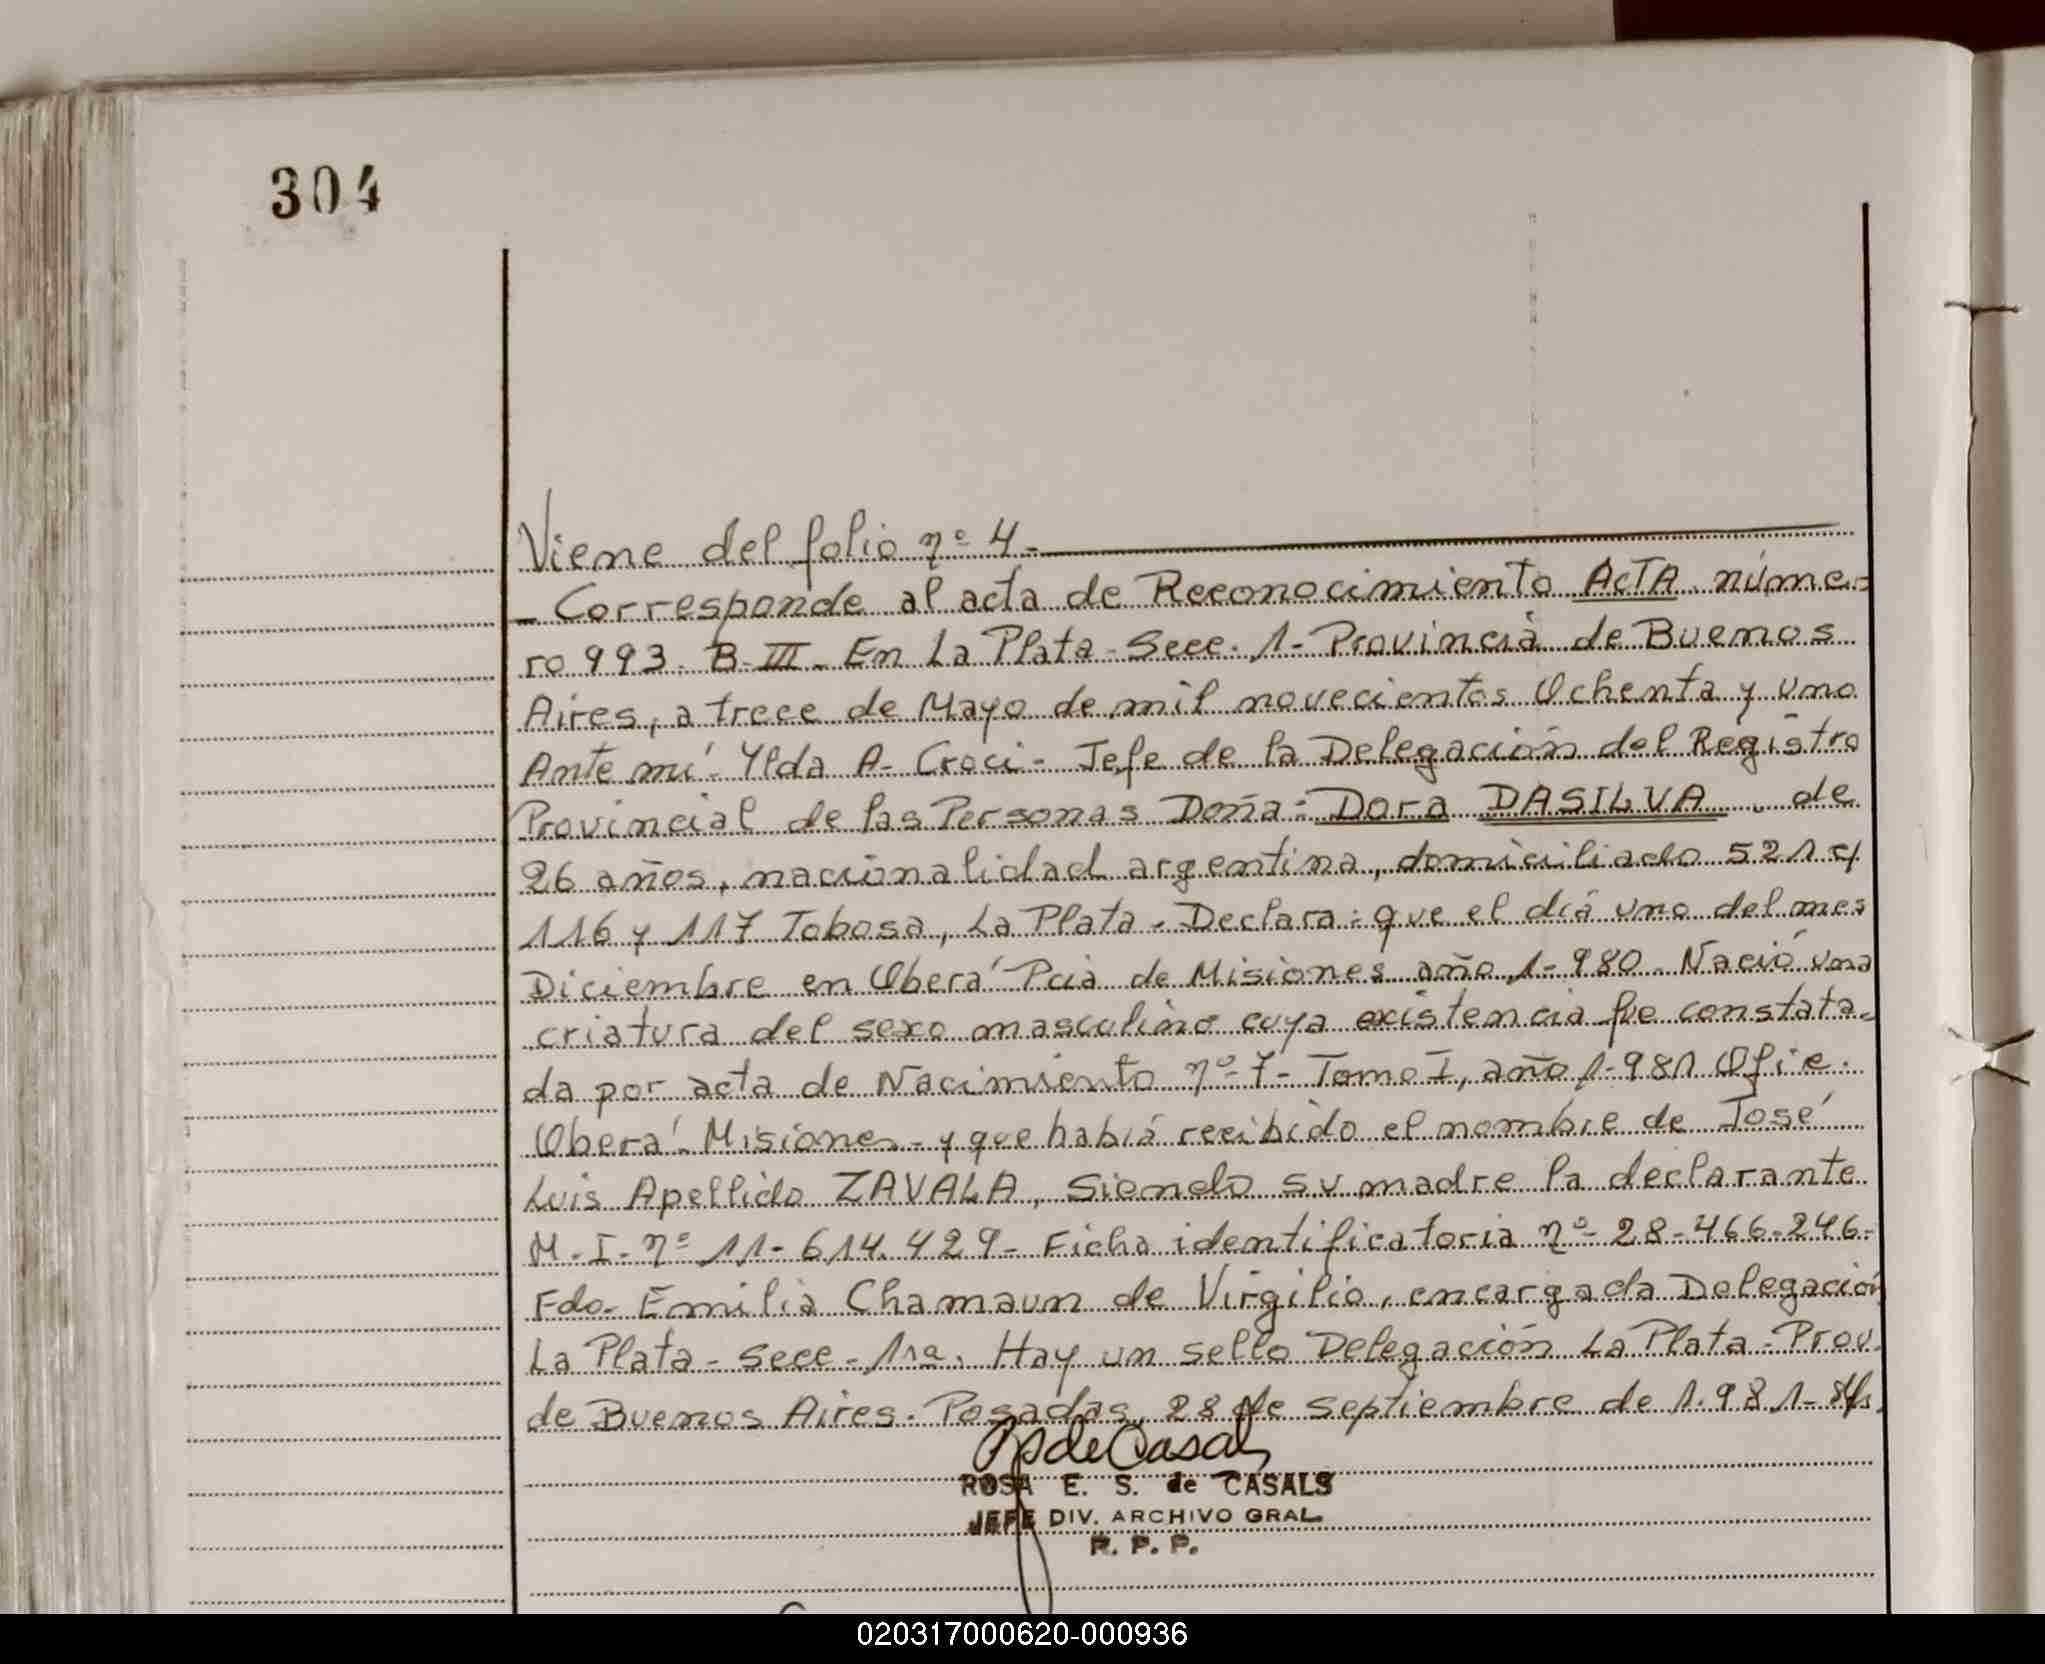 304
Viene del folio nº 4-
- Corresponde al acta de Reconocimiento ACTA núme-
ro 993. B-III- En La Plata - Secc. 1- Provincia de Buenos
Aires, a trece de Mayo de mil novecientos Ochenta y uno
Ante mí- Ylda A- Croci- Jefe de la Delegación del Registro
Provincial de las Personas Doña: Dora DASILVA. de
26 años, nacionalidad argentina, domiciliado 521 c/
116 y 117 Tobosa, La Plata - Declara: que el día uno del mes
Diciembre en Oberá Pcia de Misiones año 1-980. Nació una
criatura del sexo masculino cuya existencia fue constata-
da por acta de Nacimiento nº-7- Tomo I, año 1-981 Ofic.
Oberá- Misiones- y que había recibido el nombre de José
Luis Apellido ZAVALA, siendo su madre la declarante
M-I-nº 11-614.429- Ficha identificatoria nº- 28-466-246-
Fdo- Emilia Chamaun de Virgilio, encargada Delegación
La Plata - Secc - 1ra. Hay un sello Delegación La Plata - Prov.
de Buenos Aires. Posadas, 28 de Septiembre de 1.981-
ROSA E. S. de CASALS
JEFE DIV. ARCHIVO GRAL.
R. P. P.
020317000620-000936